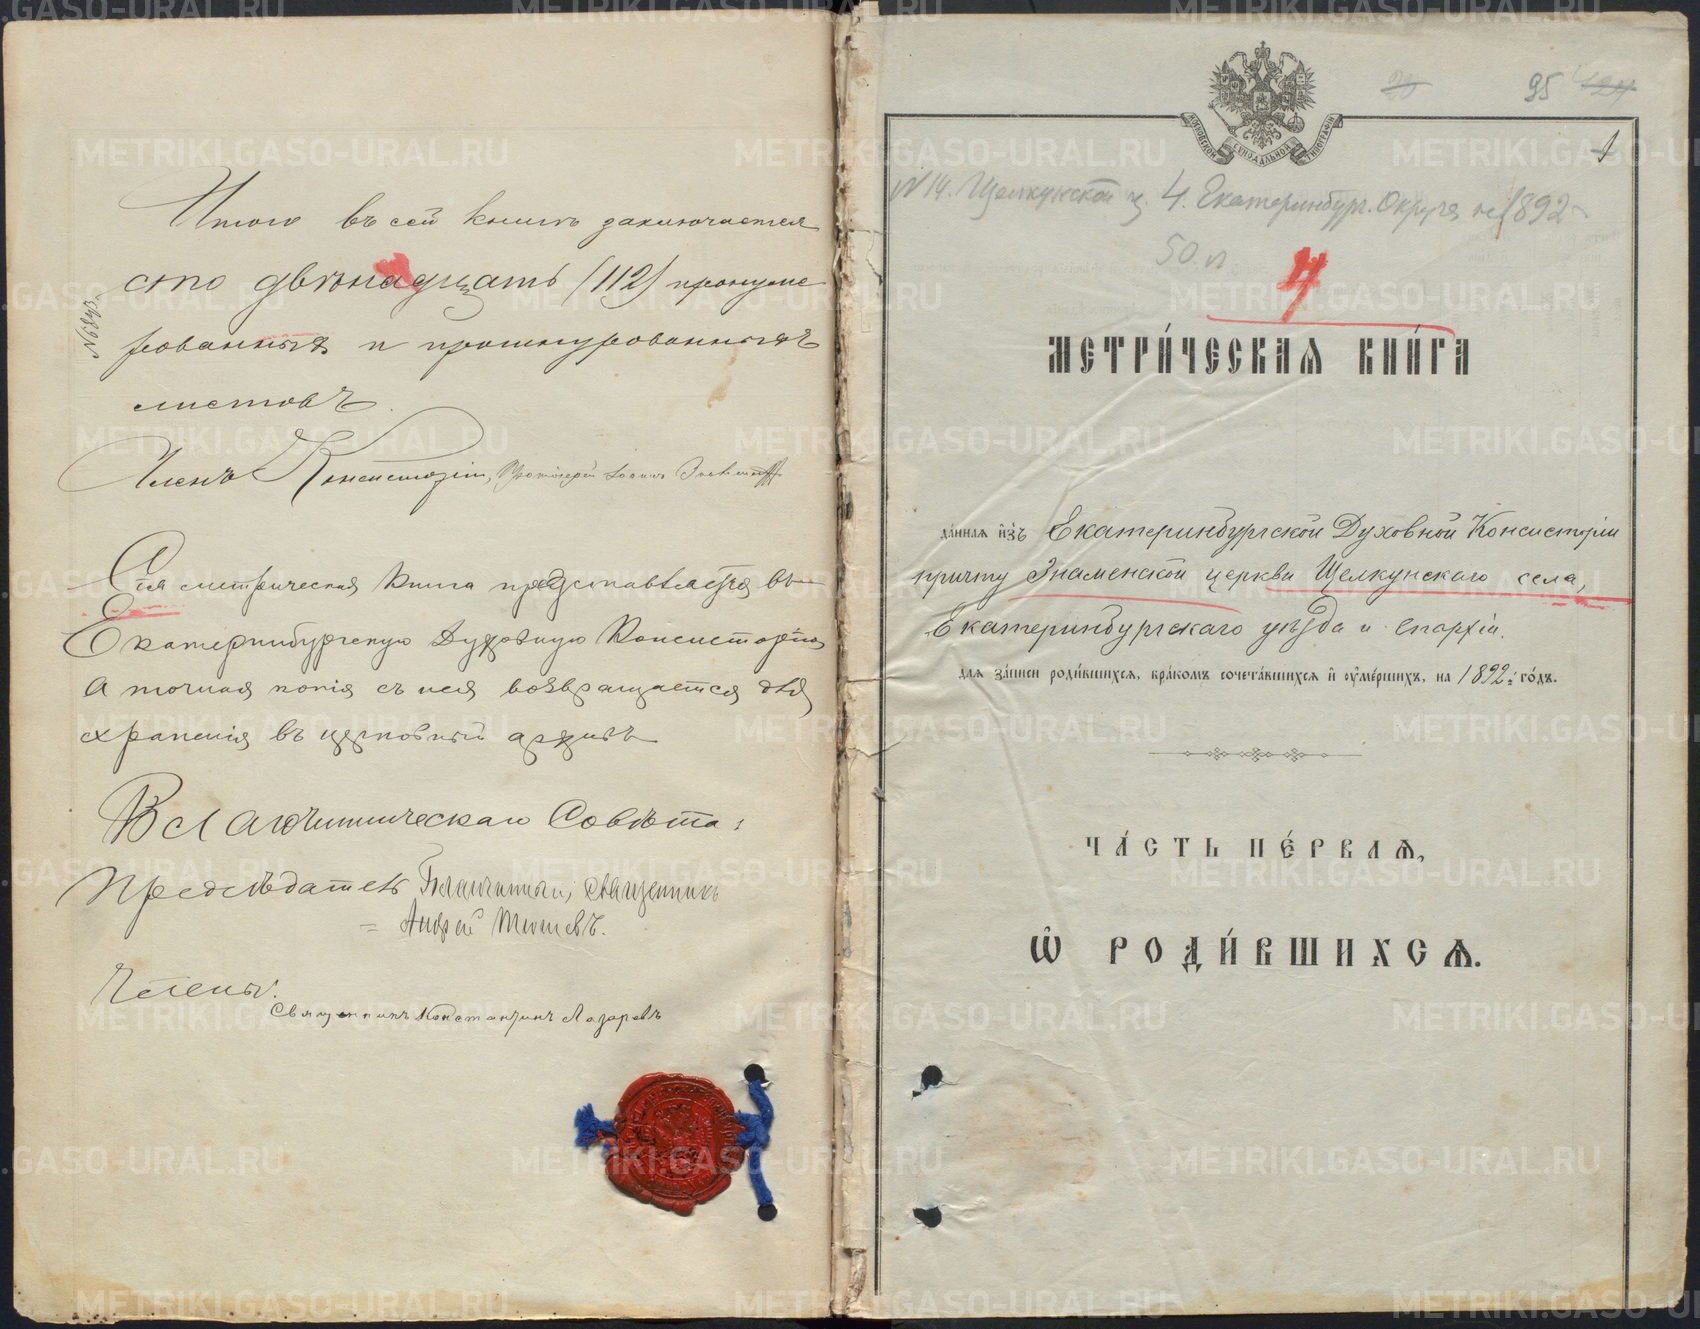 Итого въ сей книгѣ заключается
сто двѣнадцать (112) пронуме
рованныхъ и прошнурованныхъ
листовъ.
Членъ Консисторіи, Протоіерей Іоаннъ
Сія метрическая книга представляется въ
Екатеринбургскую Духовную Консисторію,
а точная копія съ нея возвращается для
храненія въ церковный архивъ
Благочинническаго Совѣта:
Предсѣдатель Благочинный, священникъ
Андрей
Члены:
Священникъ Константинъ Лазаревъ
МОСКОВСКОЙ СѴНОДАЛЬНОЙ ТИПОГРАФІИ
95
1
№ 14. Щелкунской ц. 4. Екатеринбург. Округа 1892
50 л
4
МЕТРИ́ЧЕСКАѦ КНИ́ГА
да́ннаѧ и҆зъ Екатеринбургской Духовной Консисторіи
причту Знаменской церкви Щелкунскаго села,
Екатеринбургскаго уѣзда и епархіи.
длѧ за́писи роди́вшихсѧ, бра́комъ сочета́вшихсѧ и҆ ᲂу҆ме́ршихъ, на 1892 го́дъ.
ЧА́СТЬ ПЕ́РВАѦ,
Ѽ РОДИ́ВШИХСѦ.
METRIKI.GASO-URAL.RU